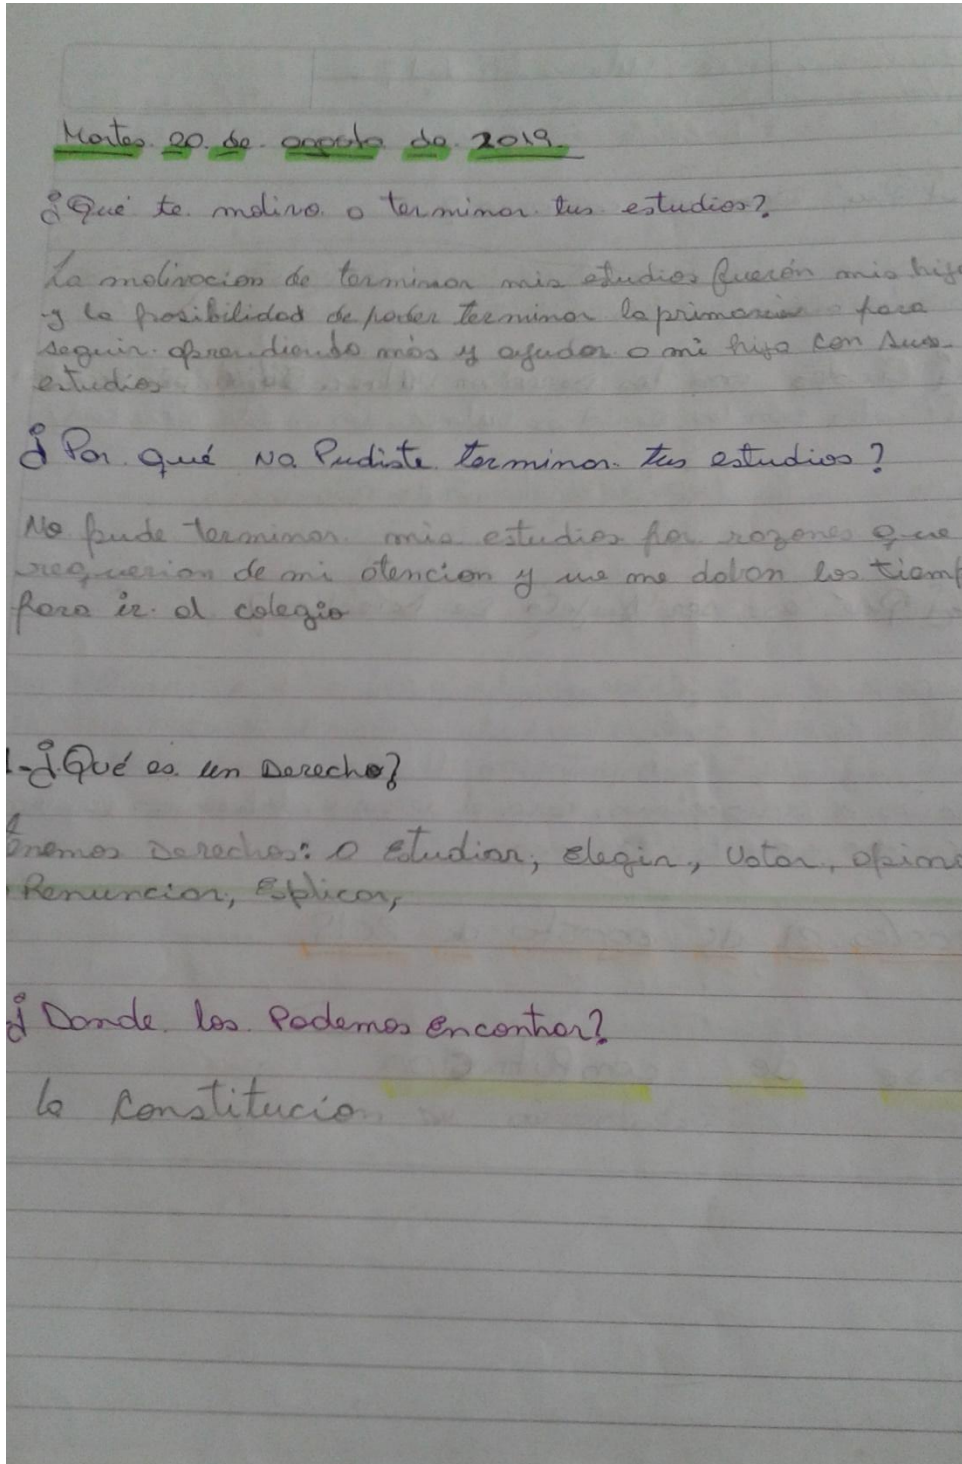 Martes 20 de agosto de 2019.
¿Qué te motivo a terminar tus estudios?
La motivacion de terminar mis estudios fuerón mis hij
y la posibilidad de poder terminar la primaria para
seguir aprendiendo más y ayudar a mi hija con sus
estudios
¿Por qué no Pudiste terminar tus estudios?
No pude terminar mis estudios por razones que
requerian de mi atencion y no me daban los tiemp
para ir al colegio
1-¿Qué es un Derecho?
enemos Derechos: a Estudiar, Elegir, Votar, opina
Renunciar, Esplicar,
¿Donde los Podemos encontrar?
la Constitucio